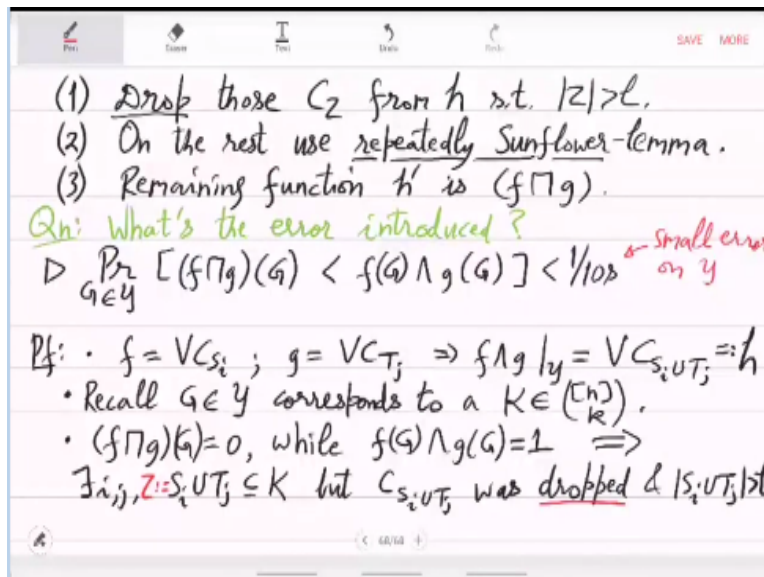 Pen Eraser Text Undo Redo SAVE MORE
(1) Drop those C_Z from h s.t. |Z|>l.
(2) On the rest use repeatedly Sunflower-lemma.
(3) Remaining function h' is (f⊓g).
Qn: What's the error introduced?
▷ Pr_{G∈Y} [(f⊓g)(G) < f(G)∧g(G)] < 1/10s ← small error on Y
Pf: · f = ⋁C_{S_i} ; g = ⋁C_{T_j} ⇒ f∧g|_Y = ⋁C_{S_i∪T_j} =: h
· Recall G∈Y corresponds to a K∈([n] k).
· (f⊓g)(G)=0, while f(G)∧g(G)=1 ⇒
∃i,j, Z:=S_i∪T_j ⊆ K but C_{S_i∪T_j} was dropped & |S_i∪T_j|>
< 68/68 +